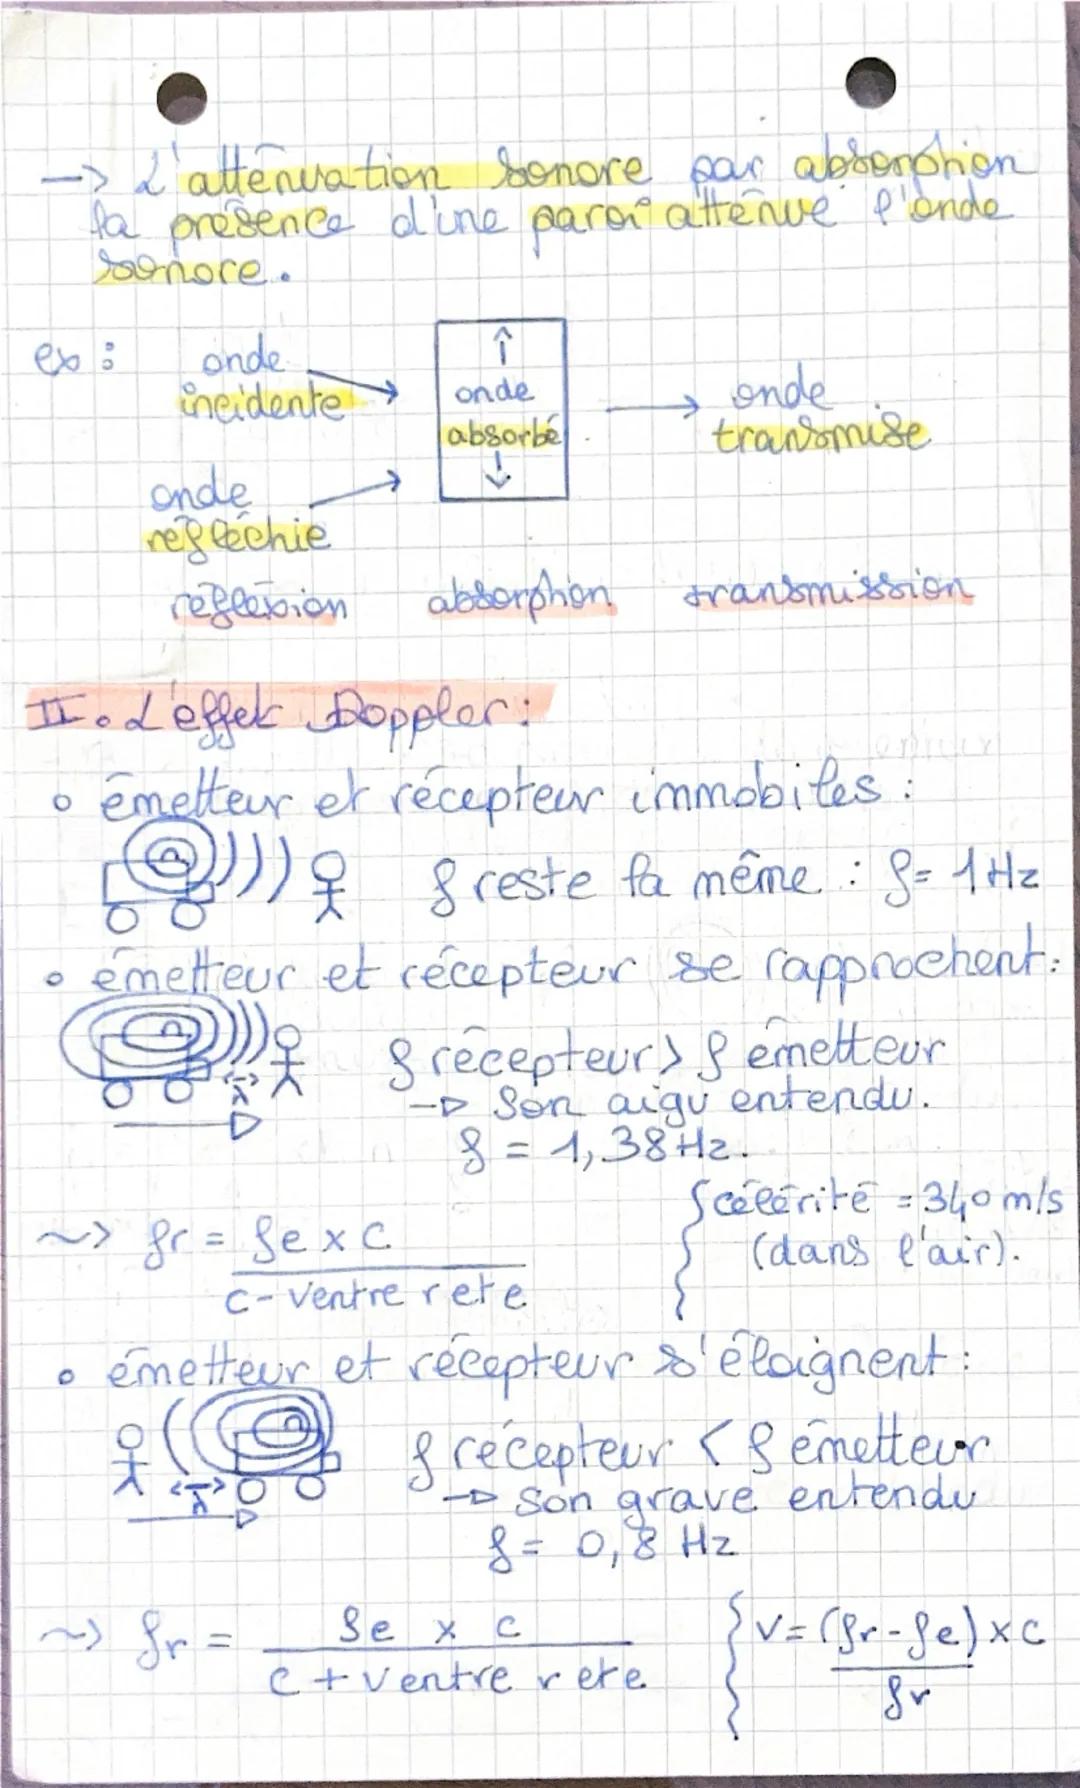 -> L'atténuation sonore par absorption
la présence d'une paroi atténue l'onde
sonore.
ex : onde incidente
↑ onde absorbé ↓
onde transmise
onde réfléchie
réflexion absorption transmission
II. L'effet Doppler :
o émetteur et récepteur immobiles :
f reste la même : f = 1 Hz
• émetteur et récepteur se rapprochent :
f récepteur > f émetteur
-> Son aigu entendu.
λ
f = 1,38 Hz.
{ célérité = 340 m/s
(dans l'air).
~> fr = fe x c
c - v entre r et e
• émetteur et récepteur s'éloignent :
f récepteur < f émetteur
-> son grave entendu
λ
f = 0,8 Hz
~> fr = fe x c
c + v entre r et e
{ v = (fr - fe) x c
fr